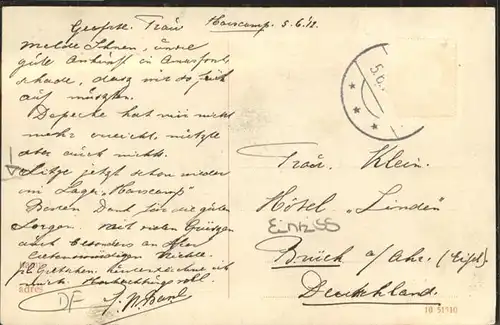 Geehrte Frau Harscamp. 5.6.12.
melde Ihnen, unsre
gute Ankunft in Amersfoort,
schade, dasz wir so früh
auf mützten.
Depeche hat mir nicht
mehr erreicht, nützte
aber auch nichts.
Sitze jetzt schon wieder
im Lager „Harscamp"
Besten Dank für die guten
Sorgen. Mit vielen Grüszen
auch besonders an Ihre
liebenswürdigen Nichte
Gretchen.
Hochachtungsvoll.
adres
DF
5.6.
Frau. Klein.
Hôtel „Linden"
Brück a/Ahr. (Eifel)
Deutschland.
10 51910